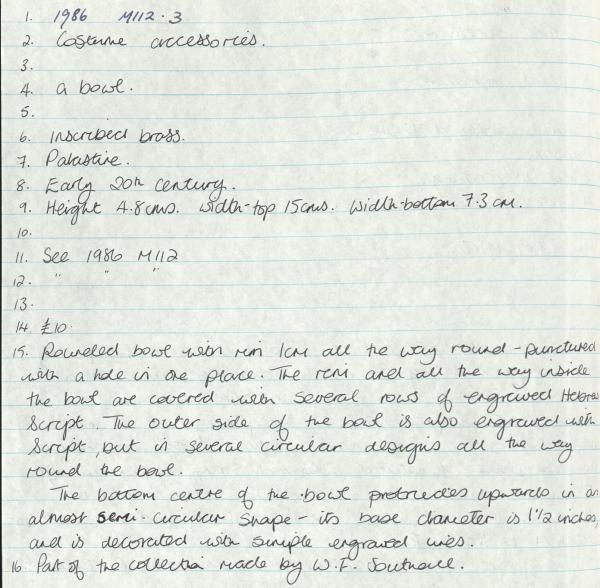 1. 1986 M112.3
2. Costume accessories.
3.
4. a bowl.
5.
6. Inscribed brass.
7. Palastine.
8. Early 20th century.
9. Height 4.8cms. width-top 15cms. width-bottom 7.3 cm.
10.
11. See 1986 M112
12. " " "
13.
14. £10.
15. Rounded bowl with rim 1cm all the way round - punctured
with a hole in one place. The rim and all the way inside
the bowl are covered with several rows of engraved Hebrew
Script. The outer side of the bowl is also engraved with
Script, but in several circular designs all the way
round the bowl.
The bottom centre of the bowl protrudes upwards in an
almost semi-circular shape - its base diameter is 1 1/2 inches,
and is decorated with simple engraved lines.
16. Part of the collection made by W.F. Southall.